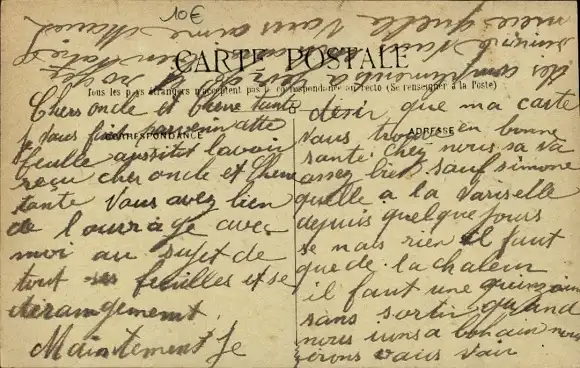 10€
CARTE POSTALE
Tous les pays étrangers n'acceptent pas la correspondance au recto (Se renseigner à la Poste)
CORRESPONDANCE
ADRESSE
Chers oncle et Chere tante
Je vous fait parvenir cette
feuille aussitot lavoir
reçu cher oncle et Chere
tante Vous avez bien
de louvrage avec
moi au sujet de
tout ses feuilles et se
derangement.
Maintement Je
désir que ma carte
Vous trouve en bonne
santé. Chez nous sa va
assez bien sauf simone
quelle a la Variselle
depuis quelque Jours
se nais rien il faut
que de la chaleur
il faut une quinzaine
sans sortir quand
nous irons a nous
irons vous voir
mere quelle Vous aime